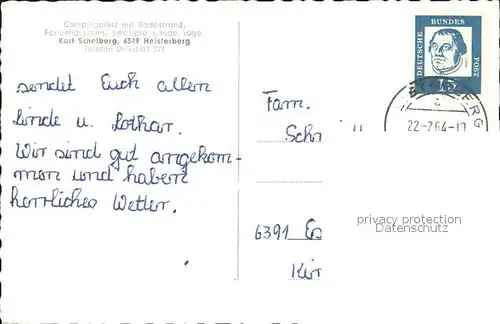 Campingplatz mit Badestrand,
Ferienhäuschen, herrliche ruhige Lage.
Karl Schelberg, 6349 Heisterberg
Telefon Driedorf 371
sendet Euch allen
Linde u. Lothar.
Wir sind gut angekom-
men und haben
herrliches Wetter.
DEUTSCHE BUNDES POST
15
22.-7.64-17
Fam.
Schr
6391
Kir
privacy protection
Datenschutz